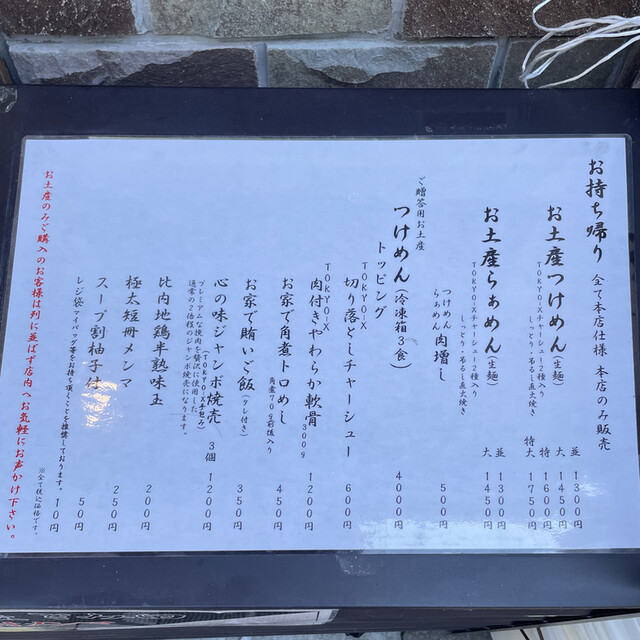 お持ち帰り 全て本店仕様 本店のみ販売
お土産つけめん(生麺)
TOKYOIXチャーシュー2種入り
しっとり・吊るし直火焼き
並 1300円
大 1450円
特 1600円
特大 1750円
お土産らぁめん(生麺)
TOKYOIXチャーシュー2種入り
しっとり・吊るし直火焼き
並 1300円
大 1450円
つけめん
らぁめん 肉増し 500円
ご贈答用お土産
つけめん(冷凍箱3食) 4000円
トッピング
TOKYOIX
切り落としチャーシュー 600円
TOKYOIX
肉付きやわらか軟骨 300g 1200円
お家で角煮トロめし 角煮70g前後入り 450円
お家で賄いご飯(タレ付き) 350円
心の味ジャンボ焼売 3個 1200円
プレミアムな挽肉を贅沢に使用した
通常の2倍程のジャンボ焼売になります。
比内地鶏半熟味玉 200円
極太短冊メンマ 250円
スープ割柚子付 50円
レジ袋マイバッグ等をお持ち頂くことを推奨しております。 10円
※全て税込価格です。
お土産のみご購入のお客様は列に並ばず店内へお気軽にお声かけ下さい。